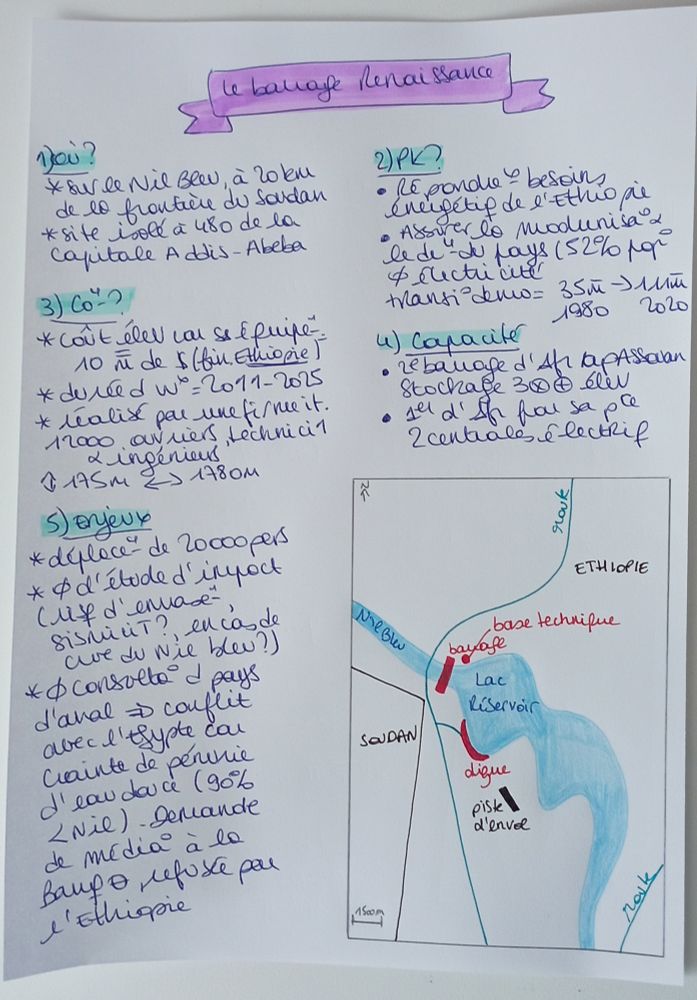 Le barrage Renaissance
1) où?
* sur le Nil Bleu, à 20 km
de la frontière du Soudan
* site isolé à 480 de la
Capitale Addis-Abeba
2) PK?
• Répondre besoins
énergétif de l'Ethiopie
• Assurer la modernisa° &
le de " du pays (52% pop°
ϕ électricité
transi° démo = 35m̄ → 11m̄
1980 2020
3) Co"-?
* coût élev car se équipe"
10 m̄ de $ (fin. Ethiopie)
* durée d w° = 2011-2025
* réalisé par une firme it.
12000 ouvriers, techniciT
& ingénieurs
↕ 175m ↔ 1780m
4) Capacité
• 2e barrage d'Afr Assouan
Stockage 3⊗⊕ élev
• 1er d'Afr par sa pce
2 centrales électrif
5) enjeux
* déplace" de 20000 pers
* ϕ d'étude d'impact
(risq d'envase",
sismiciT?, en cas de
crue du Nil bleu?)
* ϕ consulta° d pays
d'aval ⇒ conflit
avec l'Egypte car
crainte de pénurie
d'eau douce (90%
< Nil). Demande
de média° à la
Banq ⊖, refusée par
l'Ethiopie
N
route
ETHIOPIE
Nil Bleu
base technique
barrage
Lac
Réservoir
SOUDAN
digue
piste
d'envol
route
1500m